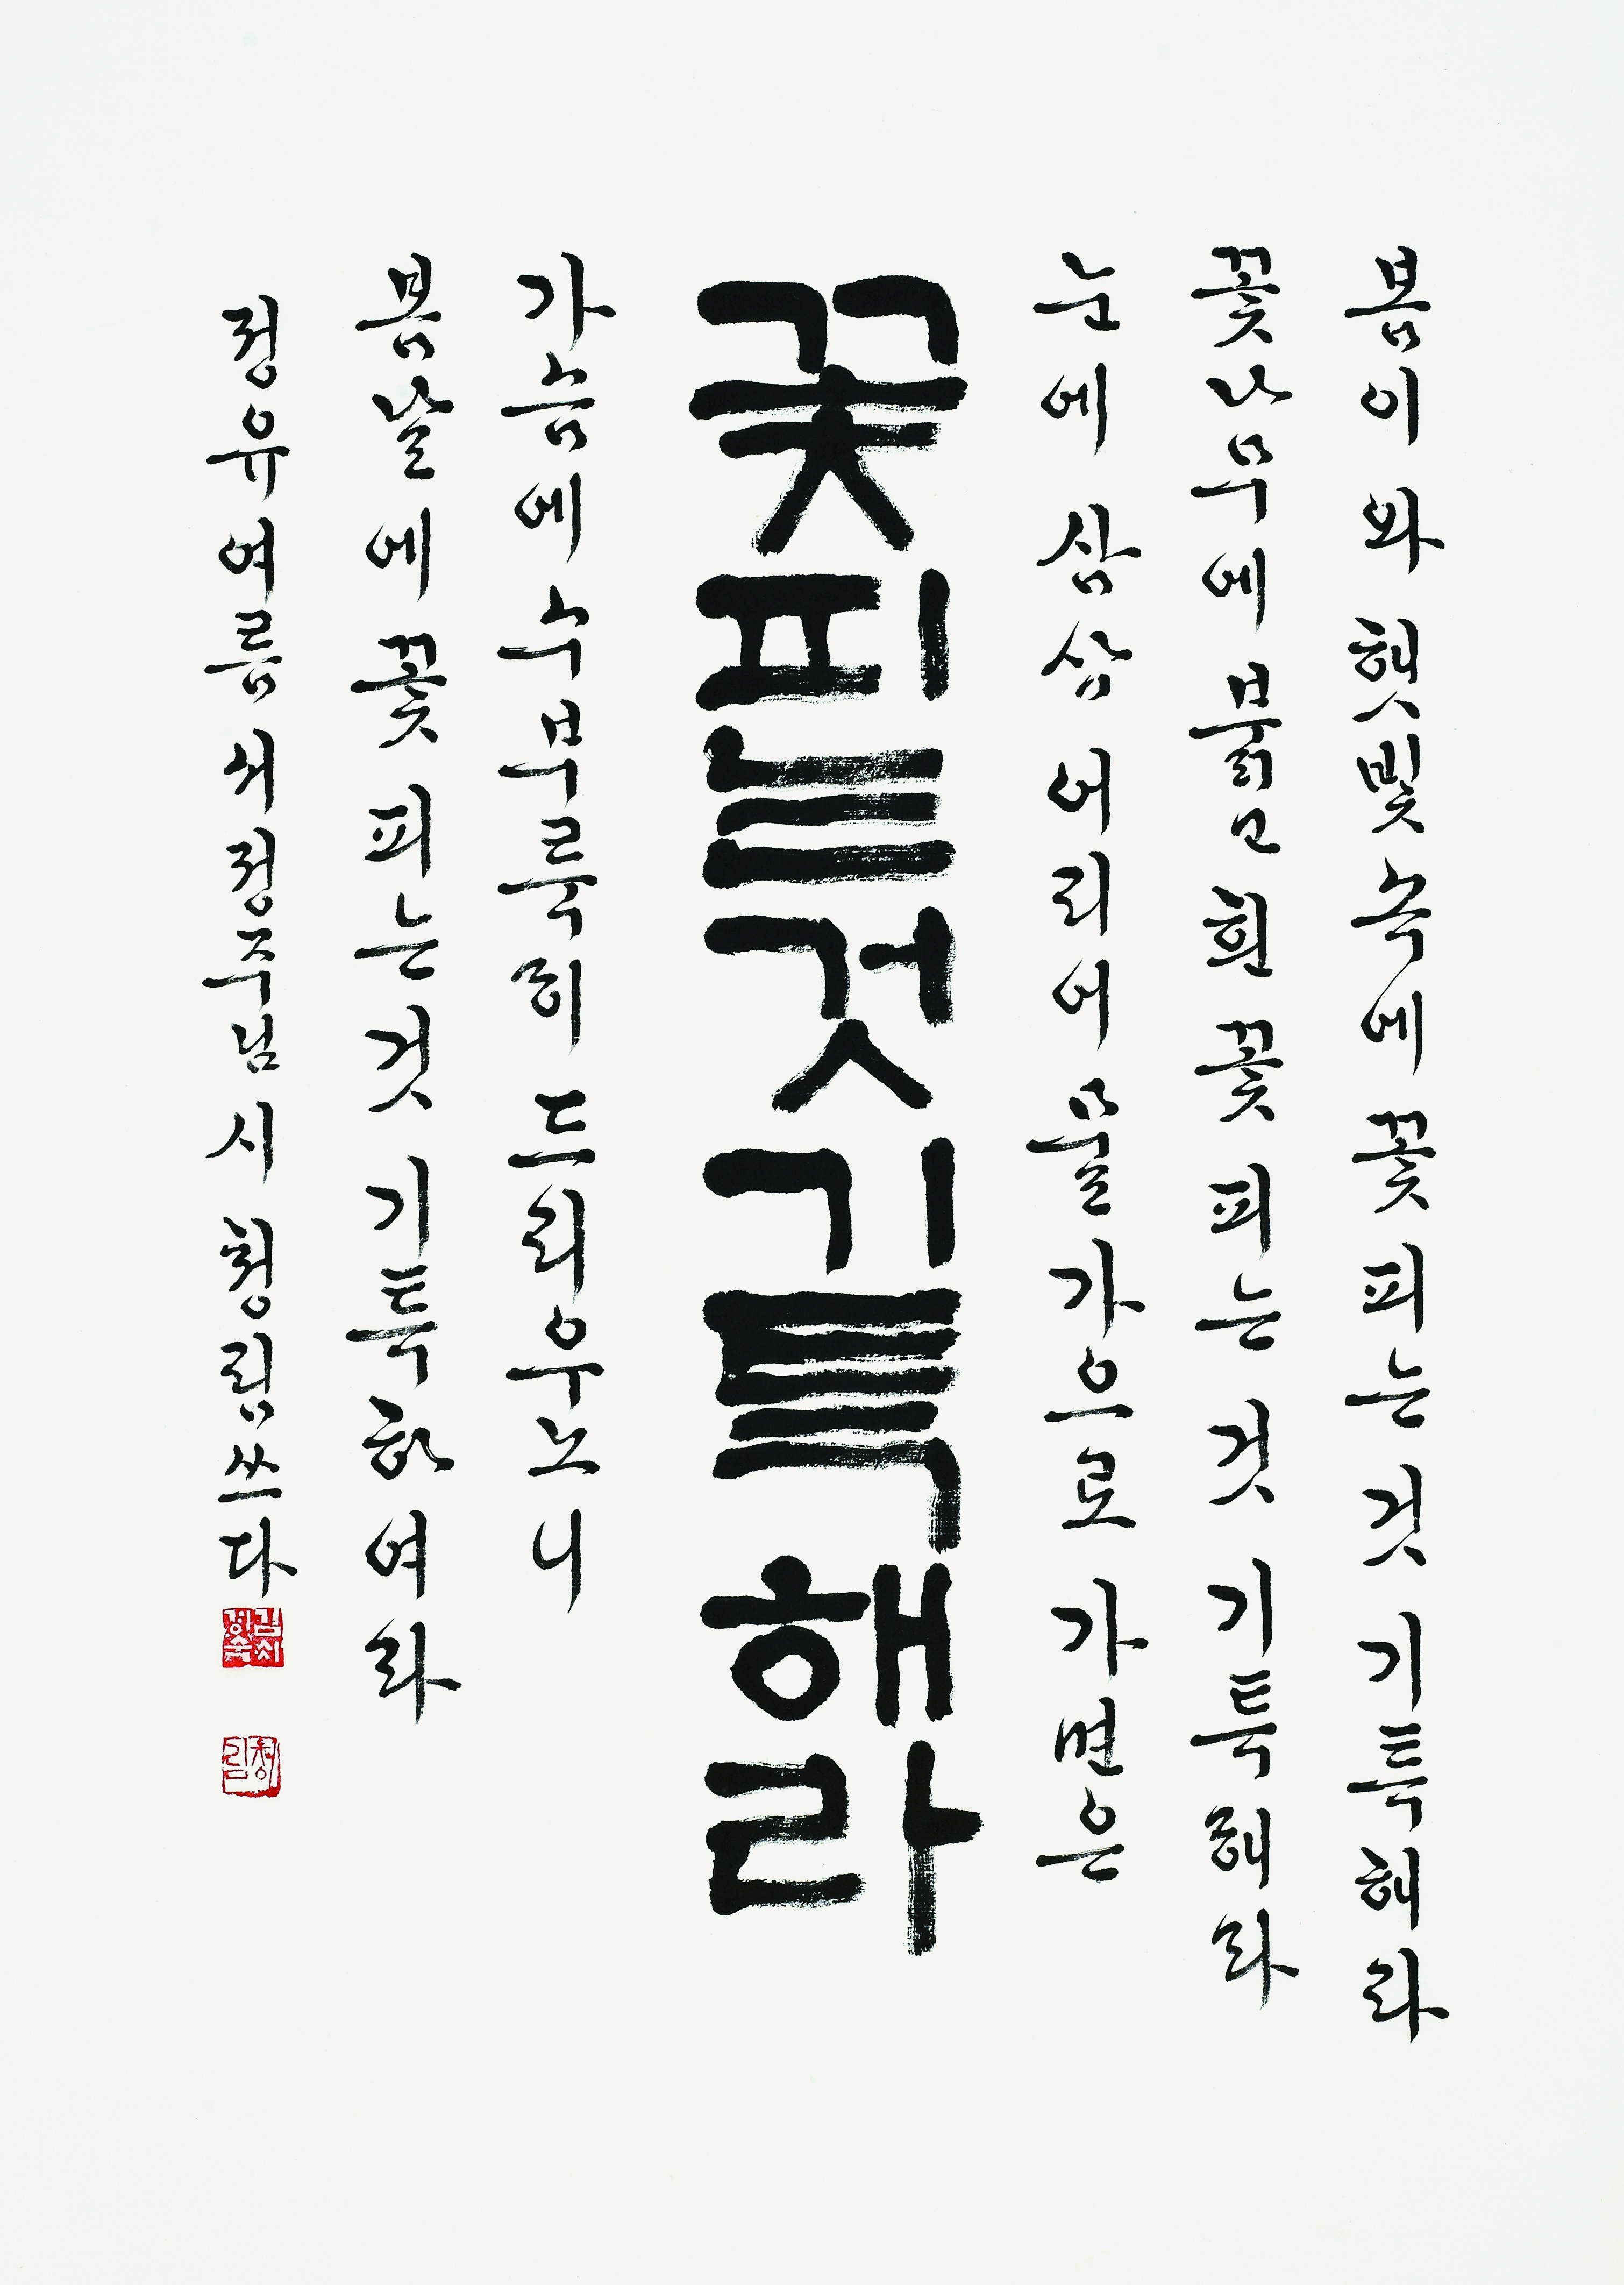 봄이 와 햇빛 속에 꽃 피는 것 기특해라
꽃나무에 붉고 흰 꽃 피는 것 기특해라
눈에 삼삼 어리어 물가으로 가면은
꽃피는것기특해라
가슴에 수부룩히 드리우노니
봄날에 꽃 피는 것 기특하여라
정유여름 서정주님 시 청림 쓰다
청림